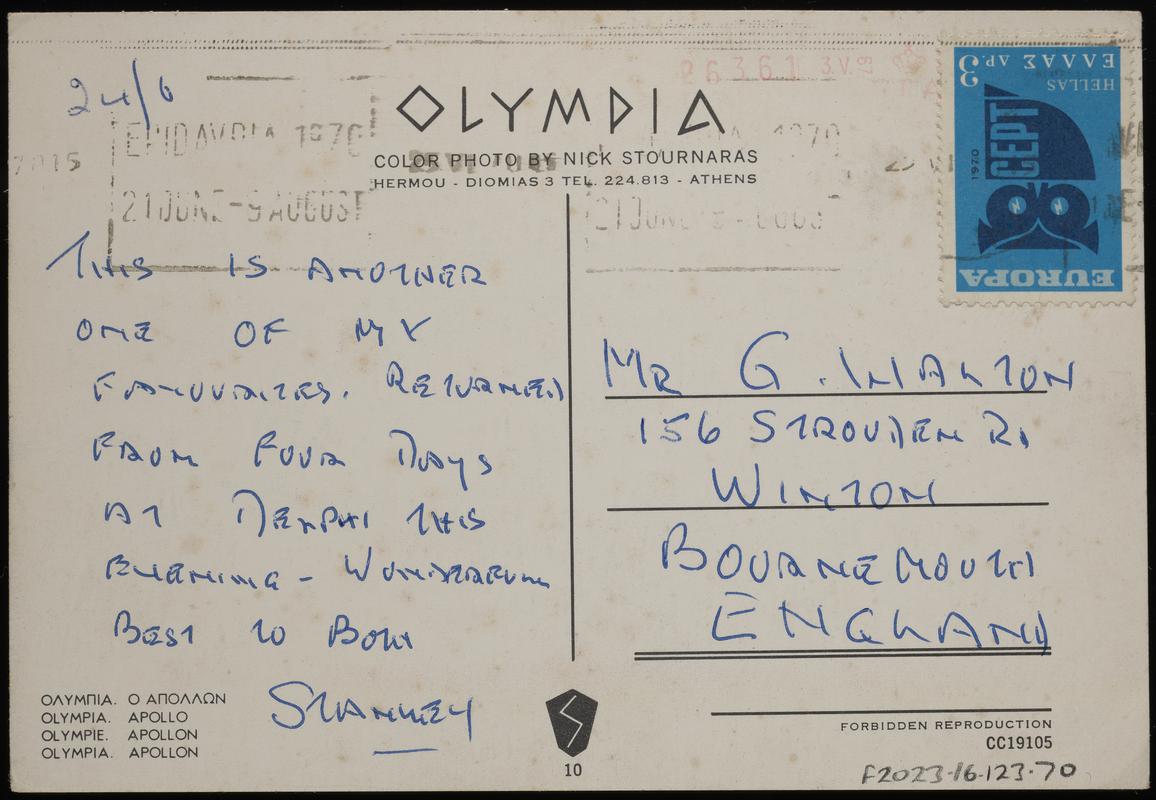 24/6
EPIDAVRIA 1970
21 JUNE - 9 AUGUST
OLYMPIA
COLOR PHOTO BY NICK STOURNARAS
HERMOU - DIOMIAS 3 TEL. 224.813 - ATHENS
ΕΛΛΑΣ ΔΡ. 3
HELLAS
CEPT
1970
EUROPA
THIS IS ANOTHER
ONE OF MY
FAVOURITES. RETURNED
FROM FOUR DAYS
AT DELPHI THIS
EVENING - WONDERFUL
BEST TO BOTH
STANLEY
MR G. WALTON
156 STROUDEN RD
WINTON
BOURNEMOUTH
ENGLAND
ΟΛΥΜΠΙΑ. Ο ΑΠΟΛΛΩΝ
OLYMPIA. APOLLO
OLYMPIE. APOLLON
OLYMPIA. APOLLON
10
FORBIDDEN REPRODUCTION
CC19105
F2023-16-123-70